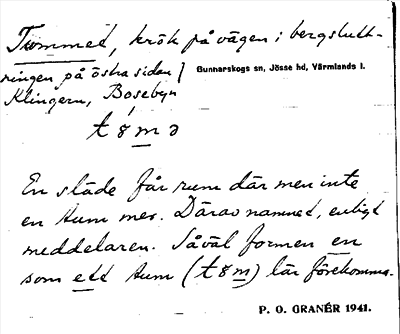 Tummed, krök på vägen i bergslutt-
ringen på östra sidan
Gunnarskogs sn, Jösse hd, Värmlands l.
Klingern, Bosebyn
En släde får rum där men inte
en tum mer. Därav namnet, enligt
meddelaren. Såväl formen en
som ett tum (t8m) lär förekomma.
P. O. GRANÉR 1941.